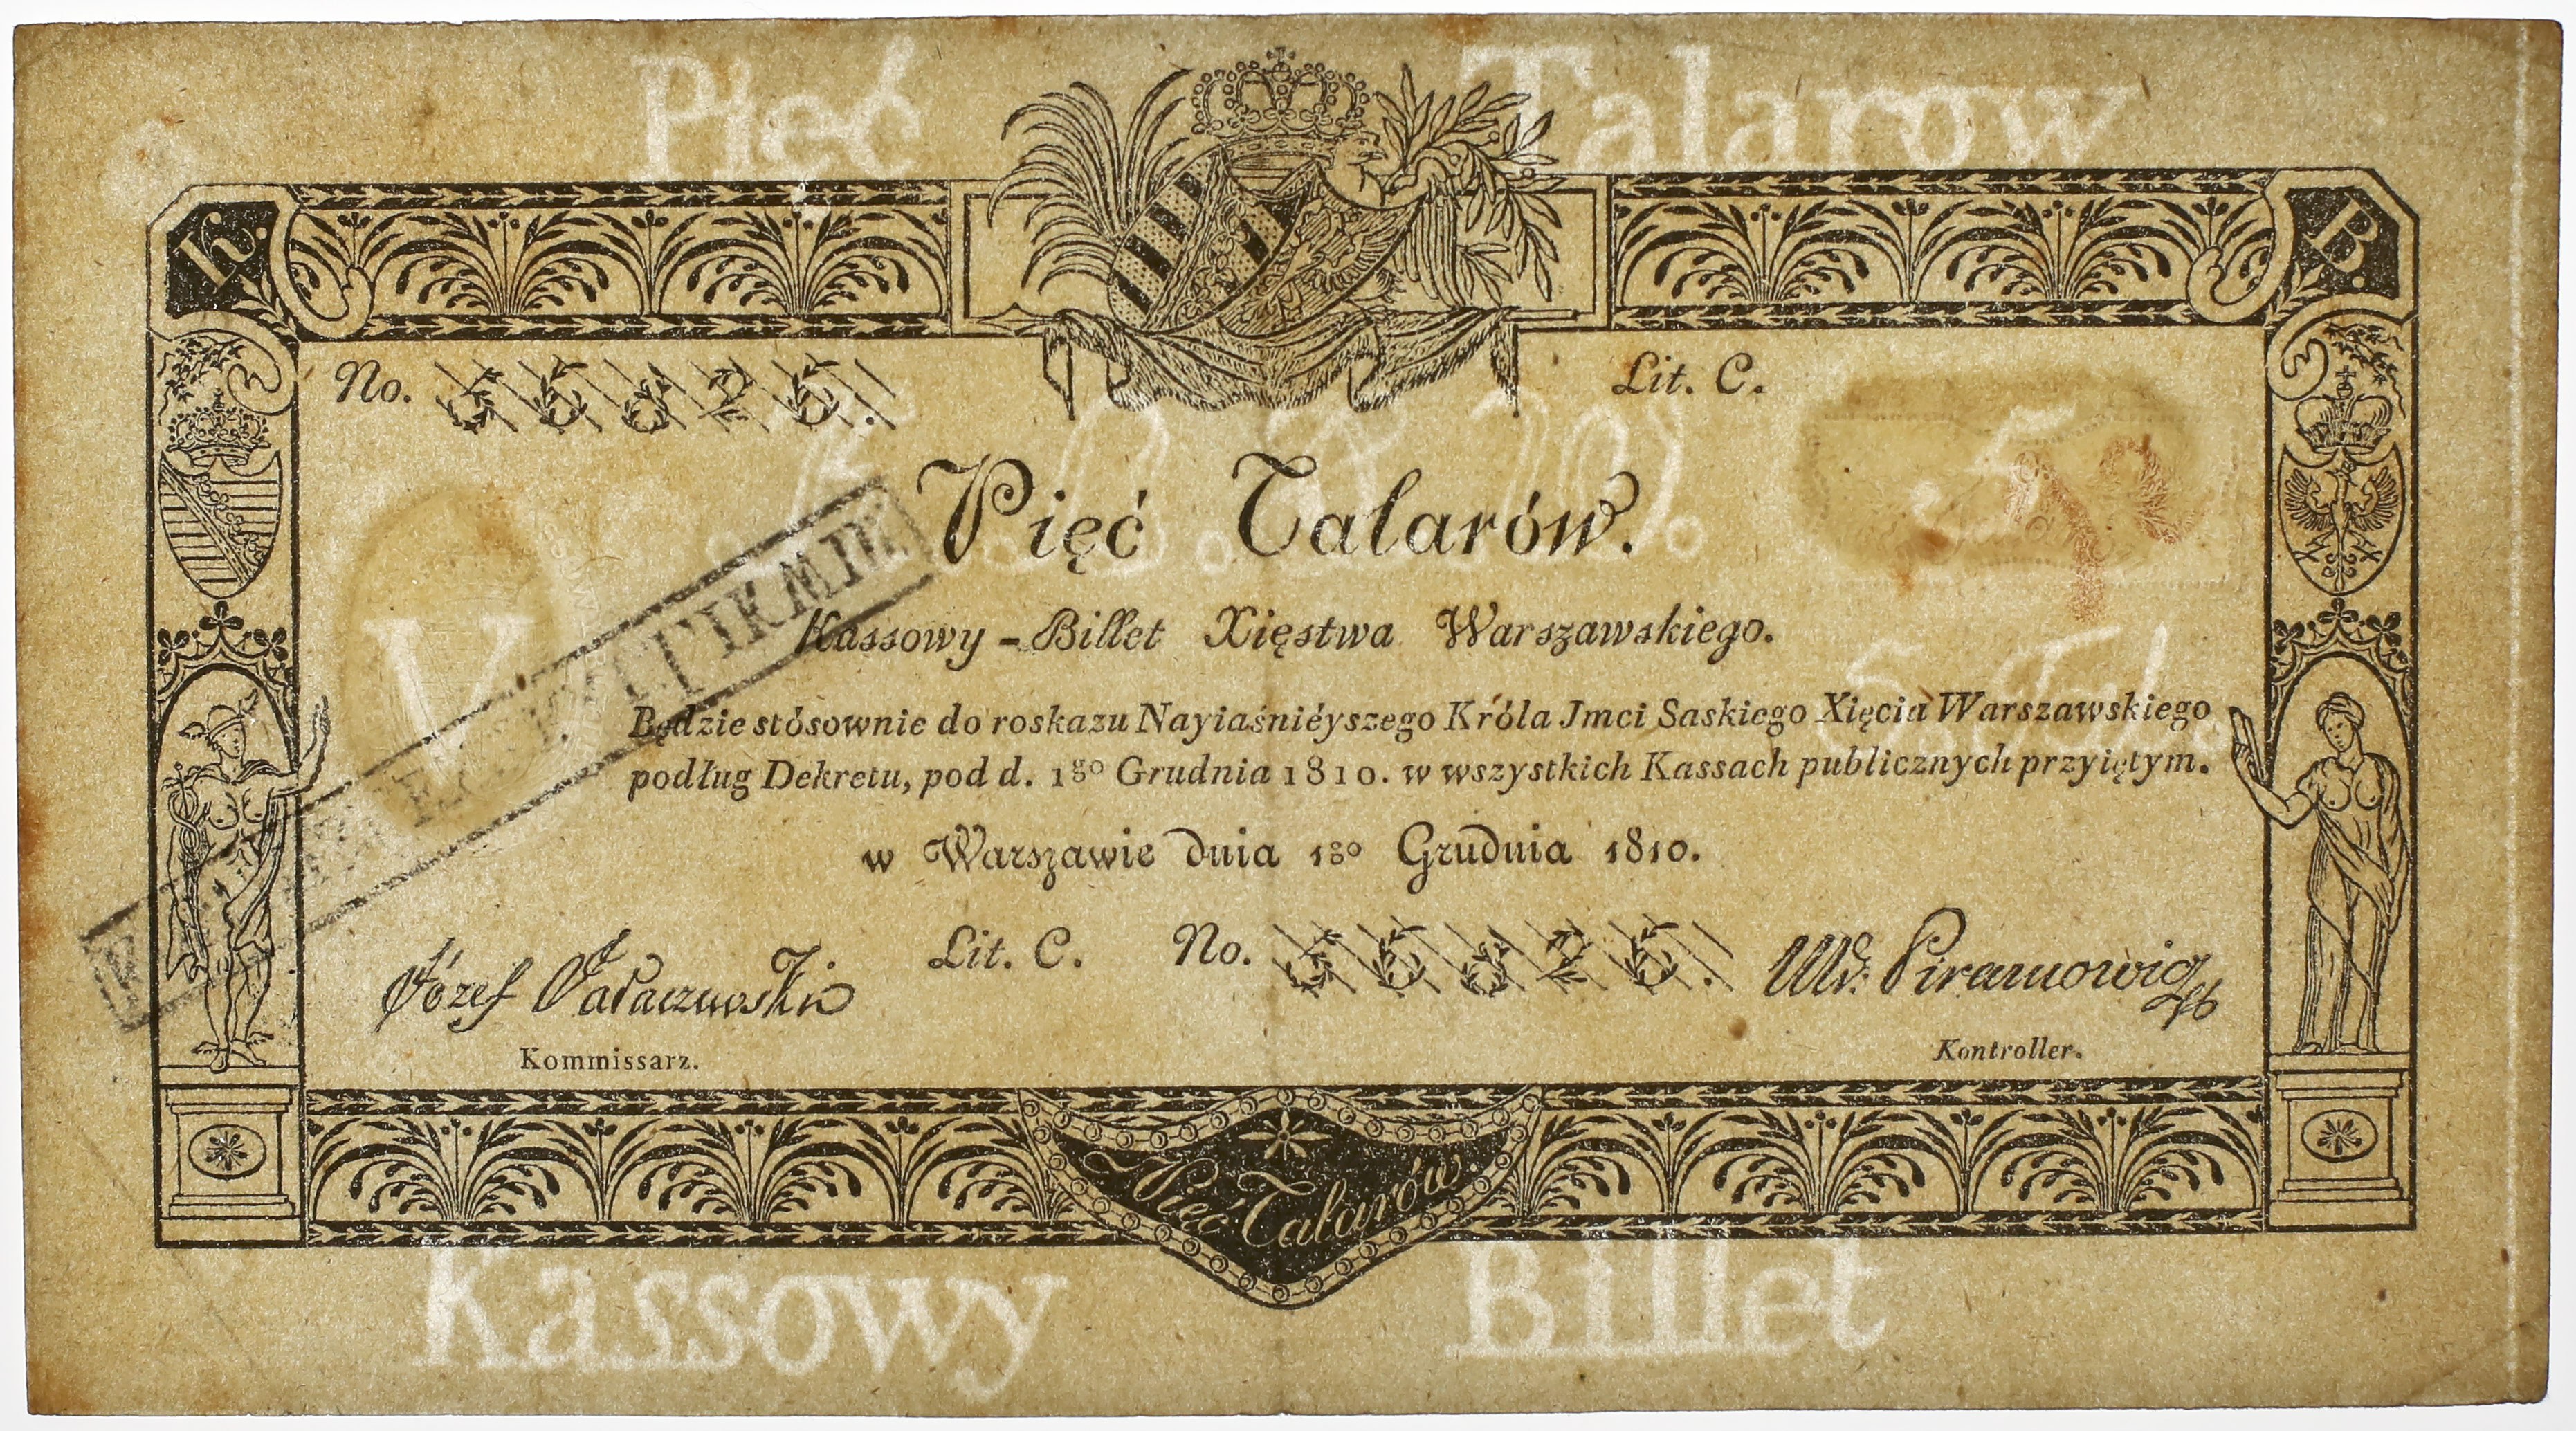 Pięć Talarow
K. B.
No. Lit. C.
Pięć Talarów.
Kassowy-Billet Xięstwa Warszawskiego.
Będzie stósownie do roskazu Nayiaśniéyszego Króla Jmci Saskiego Xięcia Warszawskiego
podług Dekretu, pod d. 1go Grudnia 1810. w wszystkich Kassach publicznych przyiętym.
w Warszawie dnia 1go Grudnia 1810.
Lit. C. No.
Józef Md. Piramowicz
Kommissarz. Kontroller.
Pięć Talarów.
Kassowy Billet